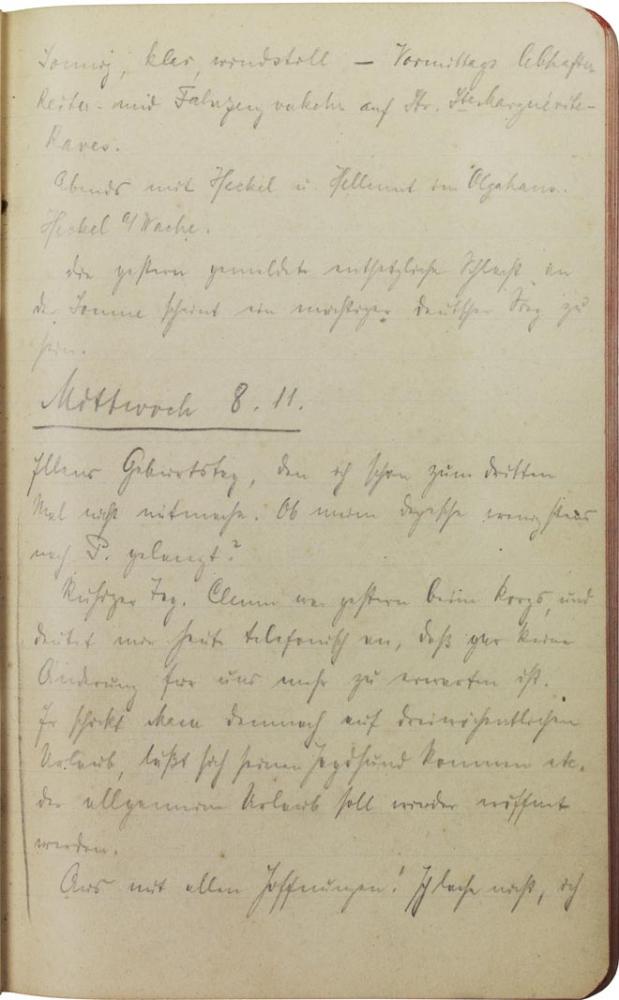 Sonnig, klar, windstill — Vormittags lebhafter
Reiter- und Fahrzeugverkehr auf Str. Ste Marguerite-
Raves.
Abends mit Heckel u. Hellmut im Olgahaus.
Heckel a/Wache.
Die gestern gemeldete entsetzliche Schlacht an
der Somme scheint ein mächtiger deutscher Sieg zu
sein.
Mittwoch 8. 11.
Illens Geburtstag, den ich schon zum dritten
Mal nicht mitmache. Ob meine Depesche wenigstens
nach P. gelangt?
Ruhiger Tag. Clemm war gestern beim Korps, und
deutet mir heute telefonisch an, daß gar keine
Änderung für uns mehr zu erwarten ist.
Er schickt demnach auf dreiwöchentlichen
Urlaub, läßt sich seinen Jagdhund kommen etc.
der allgemeine Urlaub soll wieder eröffnet
werden.
Aus mit allen Hoffnungen! Ich lache nicht, ich